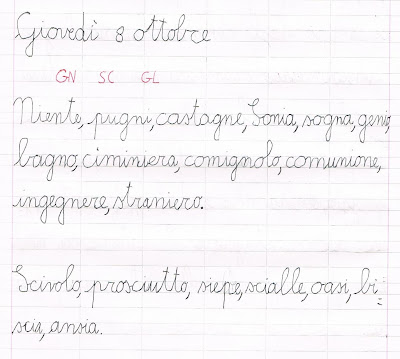 Giovedì 8 ottobre
GN SC GL
Niente, pugni, castagne, Sonia, sogna, genio,
bagno, ciminiera, comignolo, comunione,
ingegnere, straniero.
Scivolo, prosciutto, siepe, scialle, oasi, bi=
scia, ansia.